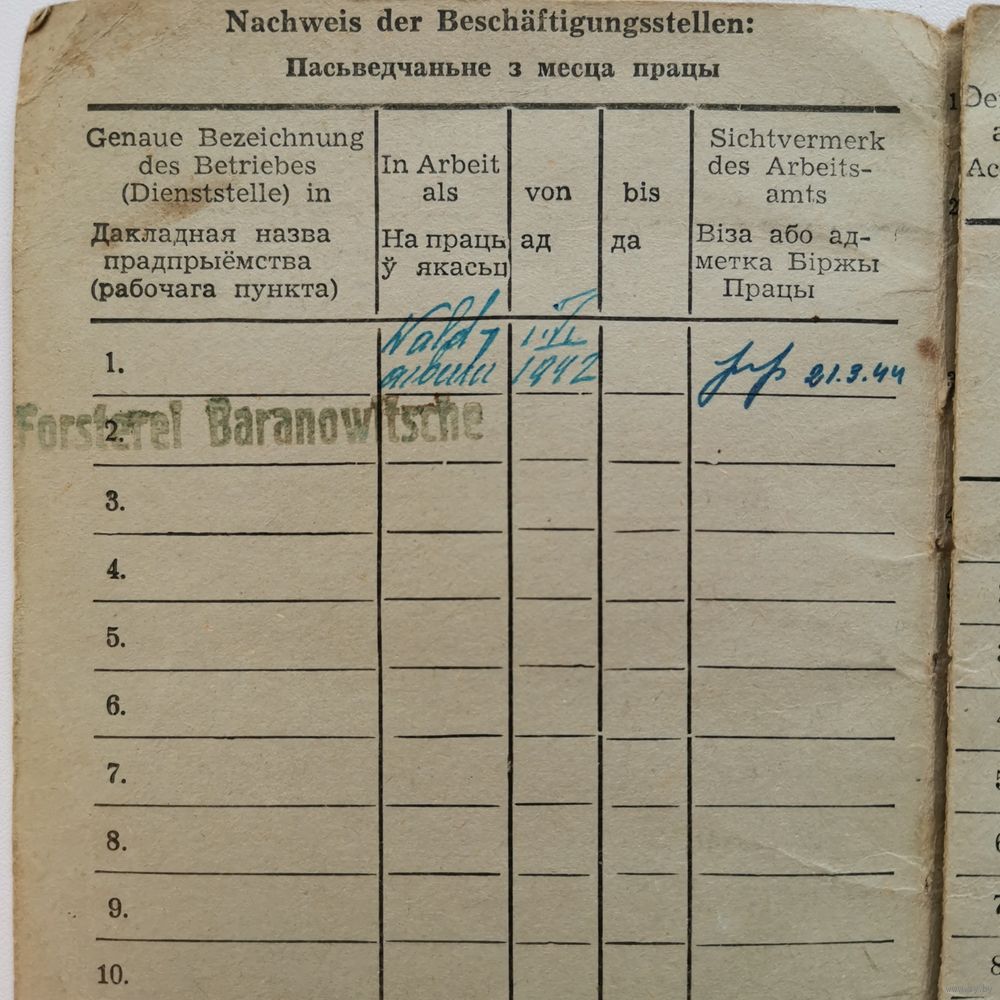 Nachweis der Beschäftigungsstellen:
Пасьведчаньне з месца працы
Genaue Bezeichnung
des Betriebes
(Dienststelle) in
Дакладная назва
прадпрыёмства
(рабочага пункта)
In Arbeit
als
На праць
ў якасьц
von
ад
bis
да
Sichtvermerk
des Arbeits-
amts
Віза або ад-
метка Біржы
Працы
1.
Wald
1.VI
1942
21.3.44
Forsterei Baranowitsche
2.
3.
4.
5.
6.
7.
8.
9.
10.
1
De
a
Ac
2
3
5
6
7
8